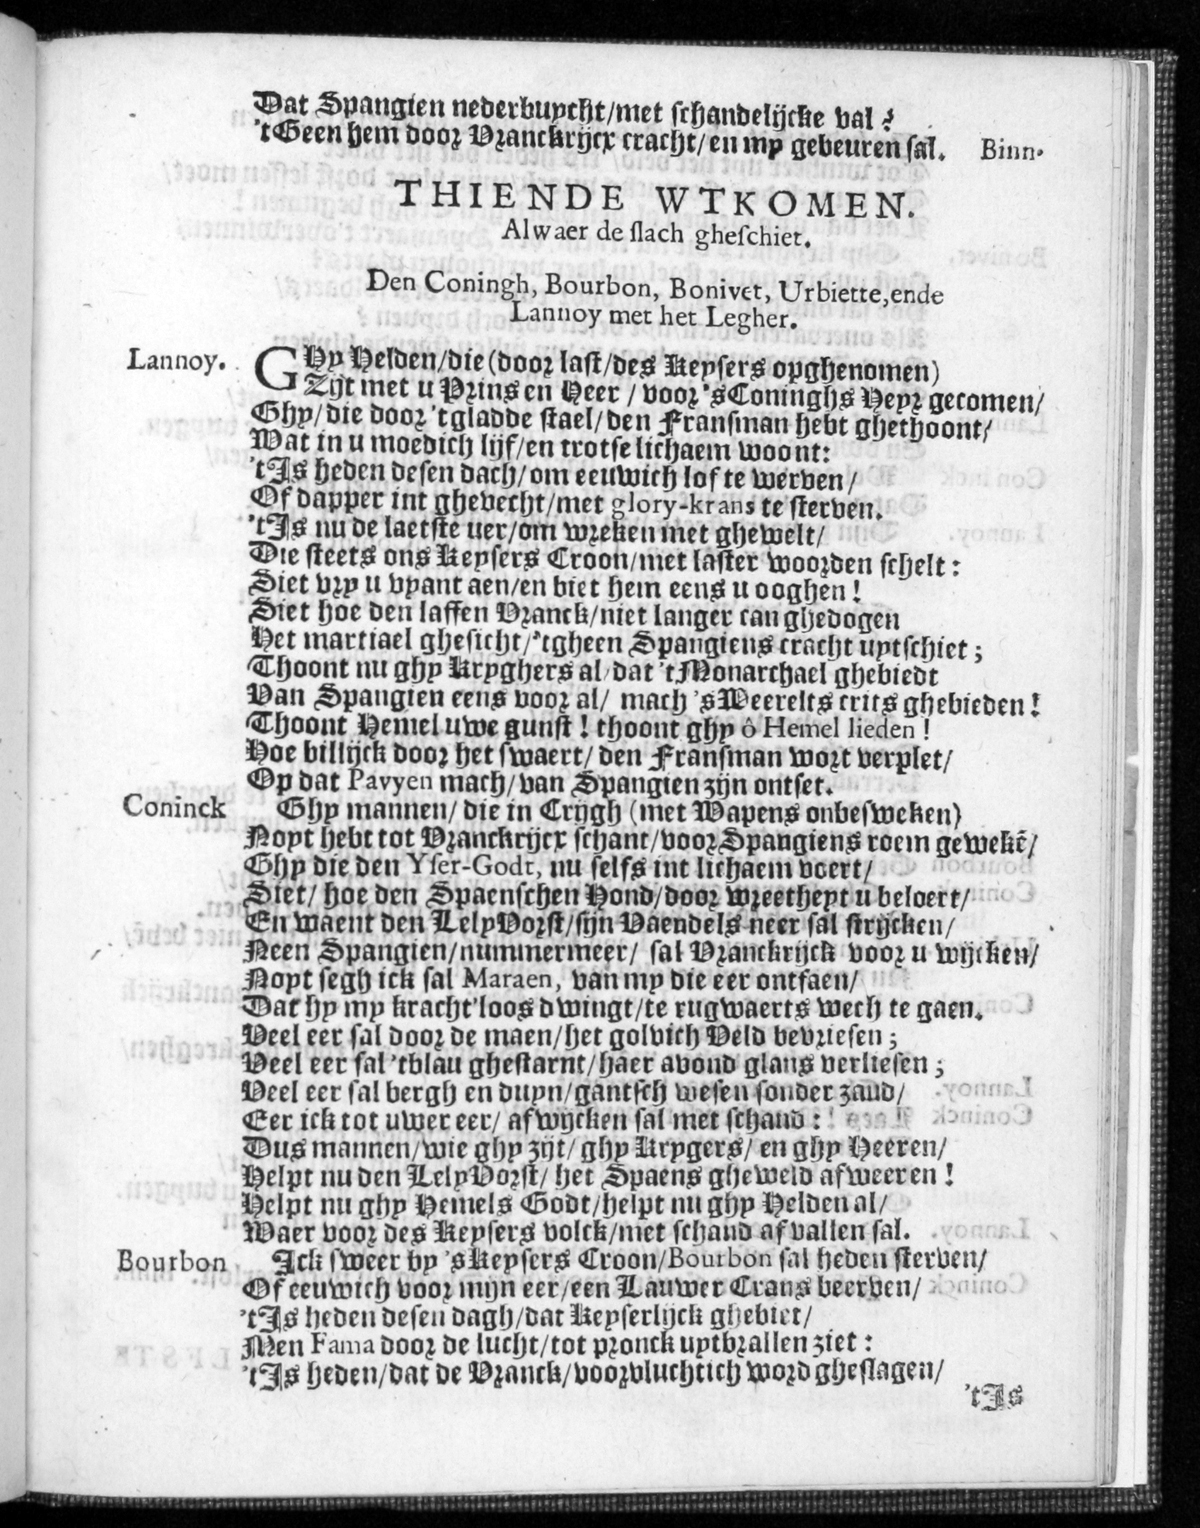 Dat Spangien nederbuycht/met schandelijcke val?
'tGeen hem door Vranckrijcx cracht/en my gebeuren sal. Binn.
THIENDE WTKOMEN.
Alwaer de slach gheschiet.
Den Coningh, Bourbon, Bonivet, Urbiette, ende
Lannoy met het Legher.
Lannoy. GHy Helden/die (door last/des Keysers opghenomen)
Zijt met u Prins en Heer / voor 'sConinghs Heyr gecomen/
Ghy/die door 'tgladde stael/den Fransman hebt ghethoont/
Wat in u moedich lijf/en trotse lichaem woont:
'tIs heden desen dach/om eeuwich lof te werven/
Of dapper int ghevecht/met glory-krans te sterven.
'tIs nu de laetste uer/om wreken met ghewelt/
Die steets ons Keysers Croon/met laster woorden schelt:
Siet vry u vyant aen/en biet hem eens u ooghen!
Siet hoe den laffen Vranck/niet langer can ghedogen
Het martiael ghesicht/'tgheen Spangiens cracht uytschiet;
Thoont nu ghy Kryghers al/dat 't Monarchael ghebiedt
Van Spangien eens voor al/ mach 'sWeerelts crits ghebieden!
Thoont Hemel uwe gunst! thoont ghy ô Hemel lieden!
Hoe billijck door het swaert/ den Fransman wort verplet/
Op dat Pavyen mach/van Spangien zijn ontset.
Coninck Ghy mannen/ die in Crijgh (met Wapens onbesweken)
Noyt hebt tot Vranckrijcx schant/voor Spangiens roem gewekē/
Ghy die den Yser-Godt, nu selfs int lichaem voert/
Siet/ hoe den Spaenschen Hond/door wreetheyt u beloert/
En waent den LelyVorst/sijn Vaendels neer sal strijcken/
Neen Spangien/nummermeer/ sal Vranckrijck voor u wijcken/
Noyt segh ick sal Maraen, van my die eer ontfaen/
Dat hy my kracht'loos dwingt/te rugwaerts wech te gaen.
Veel eer sal door de maen/het golvich Veld bevriesen;
Veel eer sal 'tblau ghestarnt/haer avond glans verliesen;
Veel eer sal bergh en duyn/gantsch wesen sonder zand/
Eer ick tot uwer eer/ afwijcken sal met schand:
Dus mannen/wie ghy zijt/ghy Krygers/ en ghy Heeren/
Helpt nu den LelyVorst/ het Spaens gheweld afweeren!
Helpt nu ghy Hemels Godt/helpt nu ghy Helden al/
Waer voor des Keysers volck/met schand afvallen sal.
Bourbon Ick sweer by 'sKeysers Croon/Bourbon sal heden sterven/
Of eeuwich voor mijn eer/een Lauwer Crans beerven/
'tIs heden desen dagh/dat Keyserlijck ghebiet/
Men Fama door de lucht/tot pronck uytbrallen ziet:
'tIs heden/dat de Vranck/voorvluchtich word gheslagen/
'tIs